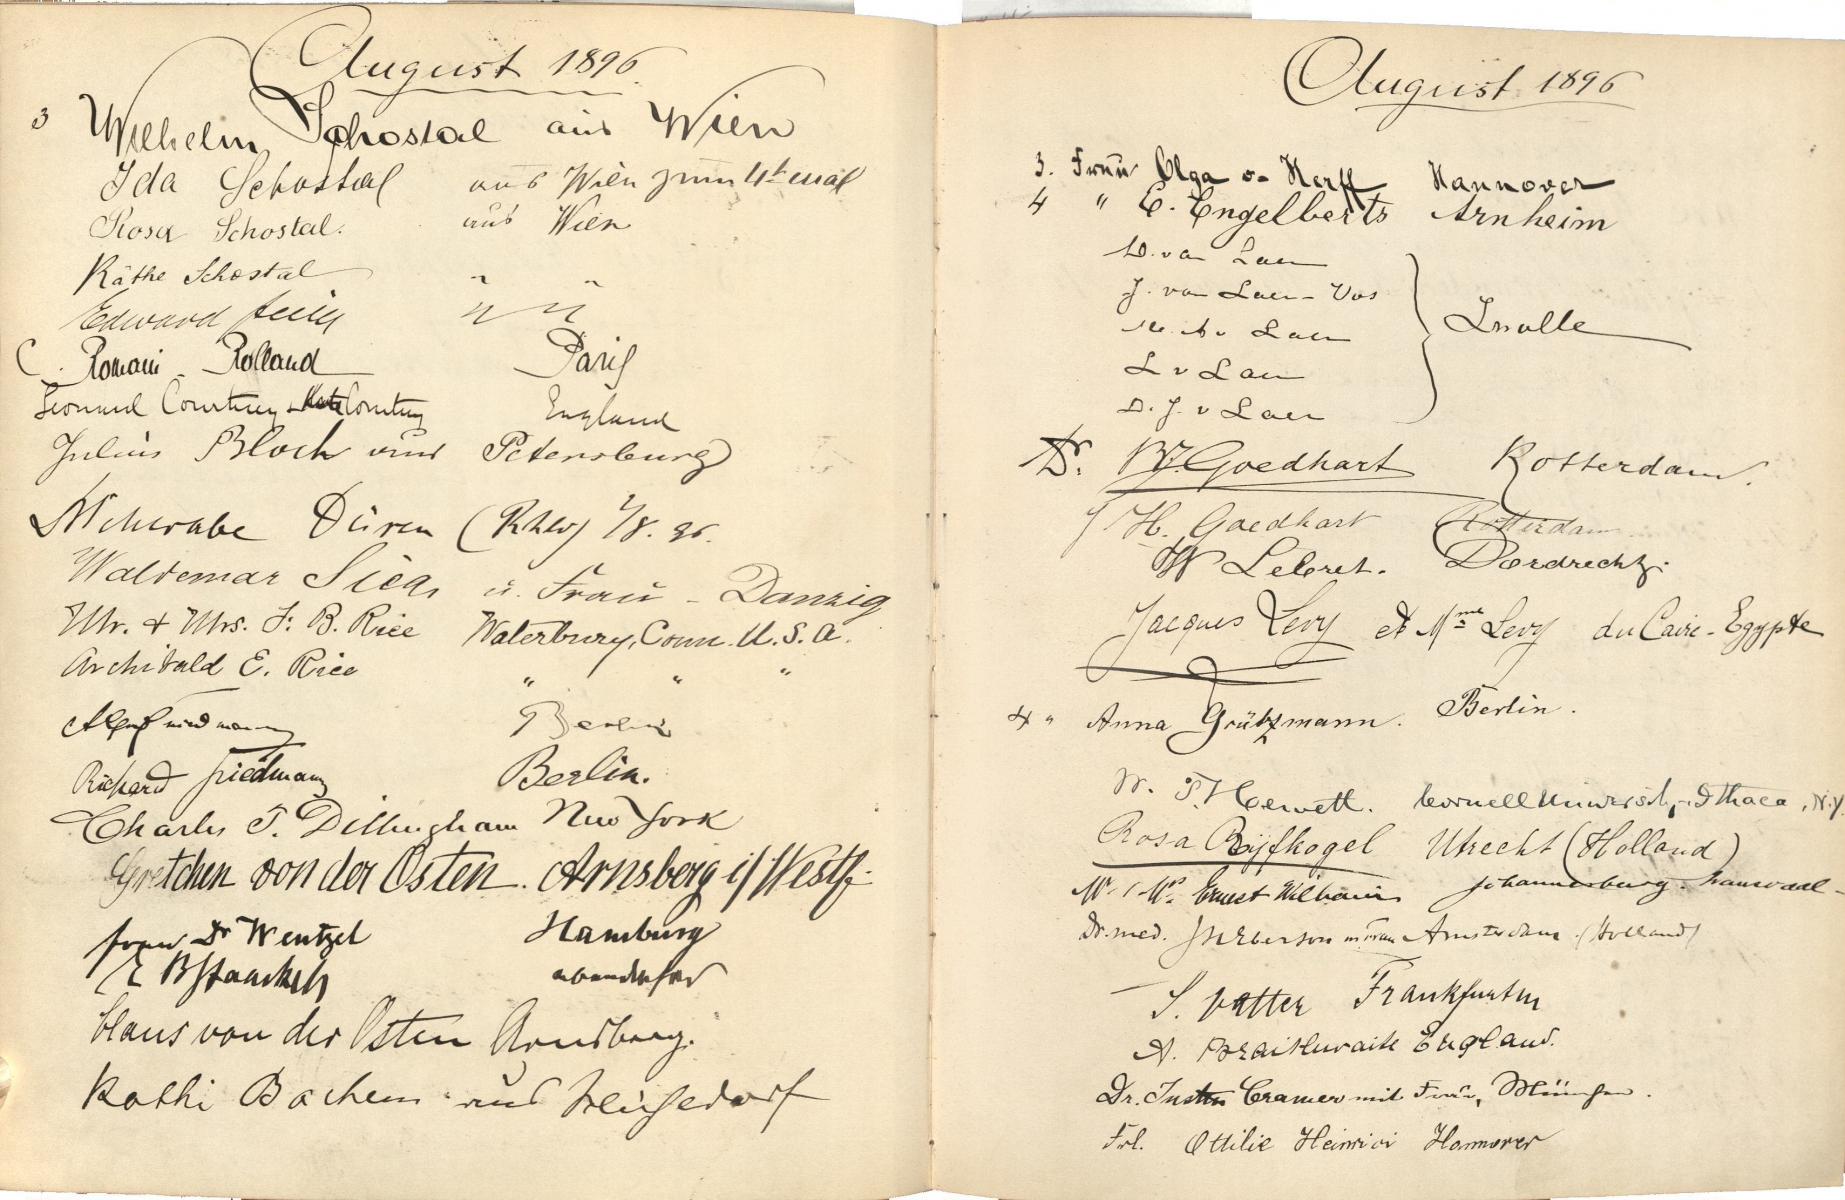 August 1896
3 Wilhelm Schostal aus Wien
Ida Schostal aus Wien zum 4t mal
Rosa Schostal. aus Wien
Käthe Schostal " "
Edward " "
Romain Rolland Paris
Leonard Courtney Kate Courtney England
Julius Bloch aus Petersburg
Schwabe Düren (Rhld) /8. 96.
Waldemar Sieg u. Frau - Danzig
Mr. & Mrs. F. B. Rice Waterbury, Conn. U.S.A.
Archibald E. Rice " " "
Berlin
Richard Friedmann Berlin.
Charles T. Dillingham New York
Gretchen von der Osten. Arnsberg i/Westf.
Frau Dr Wentzel Hamburg
Claus von der Osten Arnsberg.
Kathi Bachem aus
August 1896
3. Frau Olga v. Herff Hannover
4 " E. Engelberts Arnheim
D. van Laer
J. van Laer-Vos
v Laer
L v Laer
D. J. v Laer
Zwolle
Dr. W. Goedhart Rotterdam.
H. Goedhart Rotterdam
W Lebret. Dordrecht.
Jacques Levy et Mme Levy du Caire-Egypte
4 " Anna Grützmann. Berlin.
W. T. Hewett. Cornell University, Ithaca, N.Y.
Rosa Rijfkogel Utrecht (Holland)
Mr. & Mrs. Ernest Williams Johannesburg. Transvaal
Dr. med. m Frau Amsterdam (Holland)
S. Vatter Frankfurt
A. Braithwaite England.
Dr. Cramer mit Frau, München.
Frl. Ottilie Heinrici Hannover